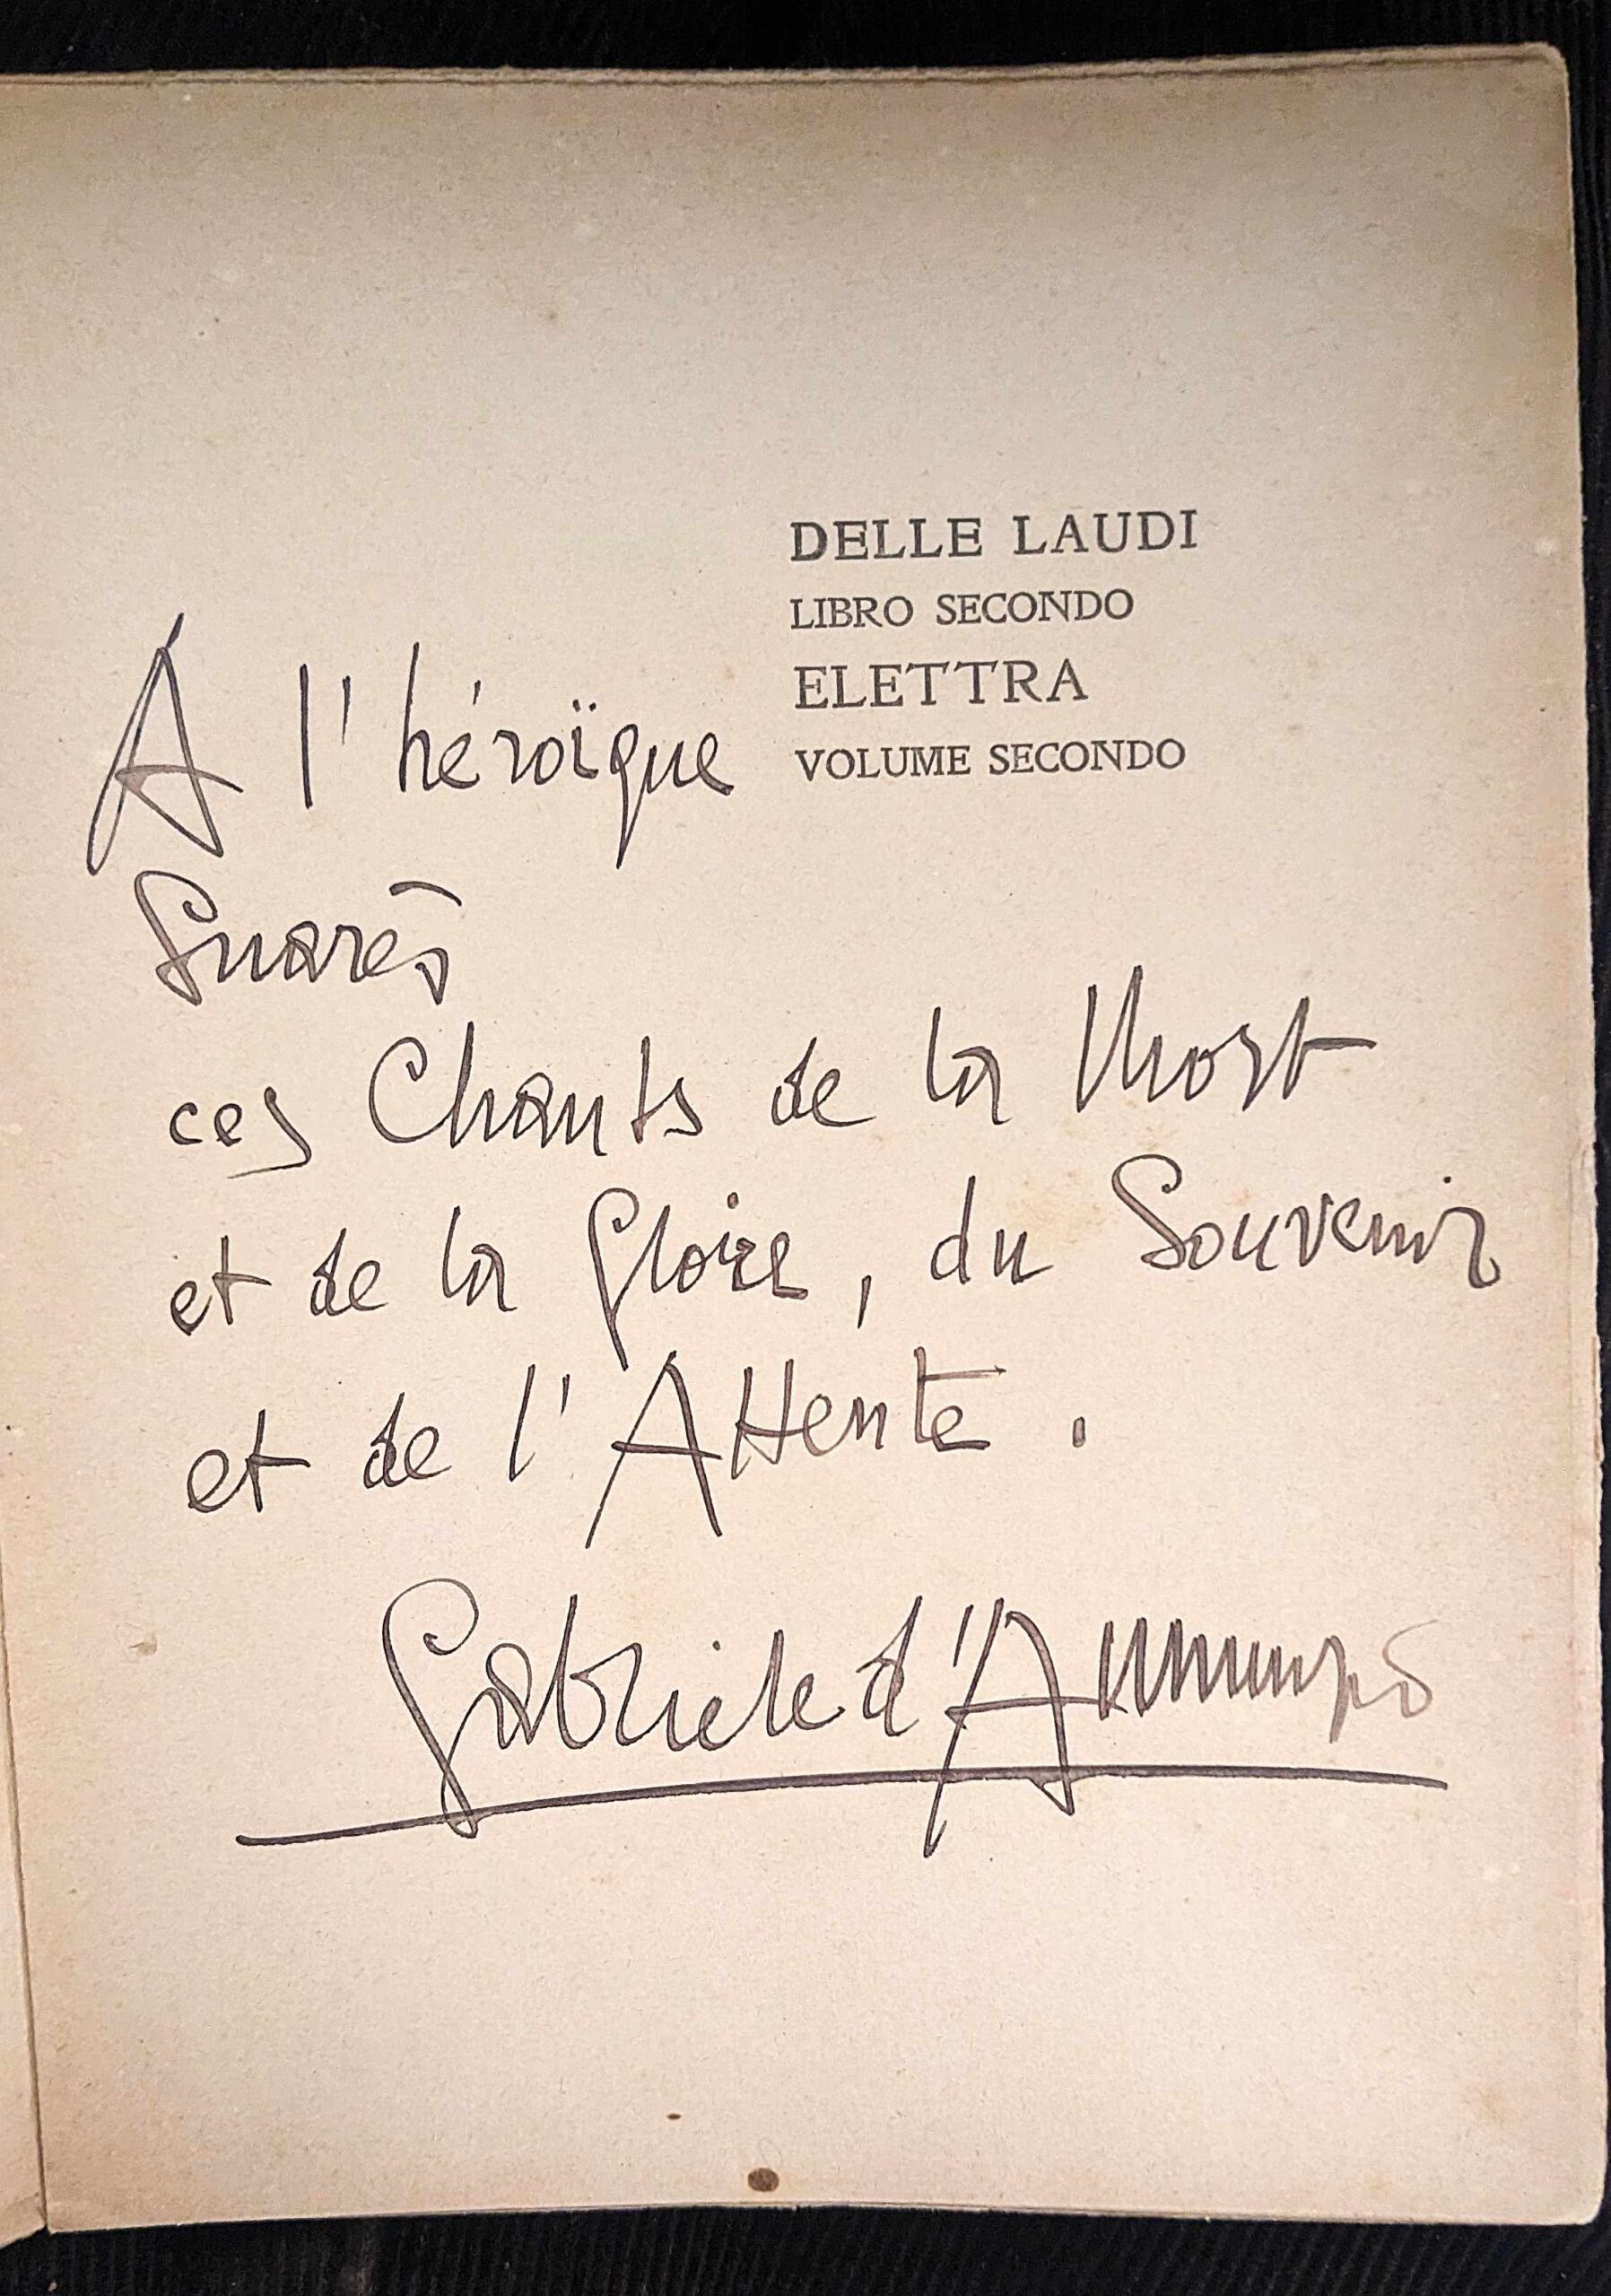 DELLE LAUDI
LIBRO SECONDO
ELETTRA
VOLUME SECONDO
À l'héroïque
Suarès
ces Chants de la Mort
et de la Gloire, du Souvenir
et de l'Attente.
Gabriele d'Annunzio